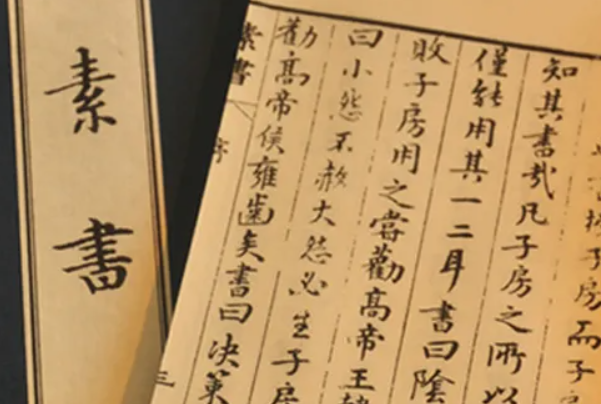 素書
子房而子
知其書哉凡子房之所以
僅能用其一二耳書曰陰
敗子房用之嘗勸高帝王
曰小怨不赦大怨必生子房
勸高帝侯雍齒矣書曰决策
素書
三